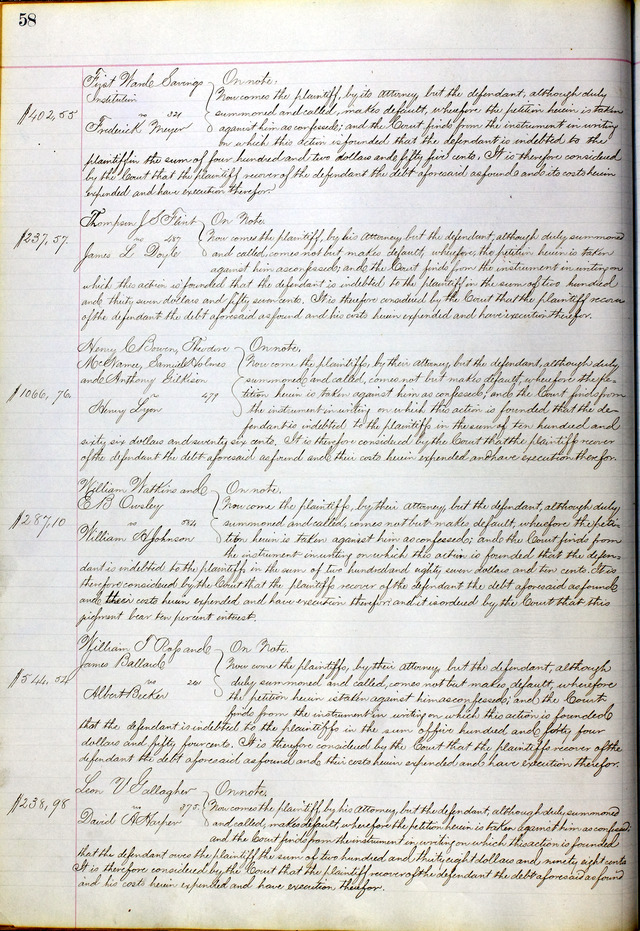 58
First Ward Savings } On note.
Institution Now comes the plaintiff, by its attorney, but the defendant, although duly
$402,55 vs 321 summoned and called, makes default, wherefore the petition herein is taken
Frederick Meyer against him as confessed; and the Court finds from the instrument in writing
on which this action is founded that the defendant is indebted to the
plaintiff in the sum of four hundred and two dollars and fifty five cents. It is therefore considered
by the Court that the plaintiff recover of the defendant the debt aforesaid as found and its costs herein
expended and have execution therefor.
Thompson J S Flint } On Note.
$237,57. vs 457 Now comes the plaintiff, by his attorney but the defendant, although duly summoned
James L Doyle and called, comes not but makes default, wherefore, the petition herein is taken
against him as confessed; and the Court finds from the instrument in writing on
which this action is founded that the defendant is indebted to the plaintiff in the sum of two hundred
and thirty seven dollars and fifty seven cents. It is therefore considered by the Court that the plaintiff recover
of the defendant the debt aforesaid as found and his costs herein expended and have execution therefor.
Henry C Bowen, Theodore } On note.
McNamee, Samuel Holmes Now come the plaintiffs, by their attorney, but the defendant, although duly
and Anthony Gilkison summoned and called, comes not but makes default, wherefore the pe-
$1066,76. vs 479 tition herein is taken against him as confessed; and the Court finds from
Henry Lyon the instrument in writing on which this action is founded that the de-
fendant is indebted to the plaintiffs in the sum of ten hundred and
sixty six dollars and seventy six cents. It is therefore considered by the Court that the plaintiffs recover
of the defendant the debt aforesaid as found and their costs herein expended and have execution therefor.
William Watkins and } On note.
E B Owsley Now come the plaintiffs, by their attorney, but the defendant, although duly
$287,10 vs 534 summoned and called, comes not but makes default, wherefore the peti-
William H Johnson tition herein is taken against him as confessed; and the Court finds from
the instrument in writing on which this action is founded that the defen-
dant is indebted to the plaintiff in the sum of two hundred and eighty seven dollars and ten cents. It is
therefore considered by the Court that the plaintiffs recover of the defendant the debt aforesaid as found
and their costs herein expended and have execution therefor: and it is ordered by the Court that this
judgment bear ten percent interest.
William I Ross and } On Note.
James Ballard Now come the plaintiffs, by their attorney, but the defendant, although
$544,54 vs 241 duly summoned and called, comes not but makes default, wherefore
Albert Becker the petition herein is taken against him as confessed; and the Court
finds from the instrument in writing on which this action is founded
that the defendant is indebted to the plaintiffs in the sum of five hundred and forty four
dollars and fifty four cents. It is therefore considered by the Court that the plaintiffs recover of the
defendant the debt aforesaid as found and their costs herein expended and have execution therefor.
Leon V Gallagher } On note.
$238,98 vs 375. Now comes the plaintiff by his attorney, but the defendant, although duly summoned
David H Harper and called, makes default, wherefore the petition herein is taken against him as confessed
and the Court finds from the instrument in writing on which this action is founded
that the defendant owes the plaintiff the sum of two hundred and thirty eight dollars and ninety eight cents
It is therefore considered by the Court that the plaintiff recover of the defendant the debt aforesaid as found
and his costs herein expended and have execution therefor.